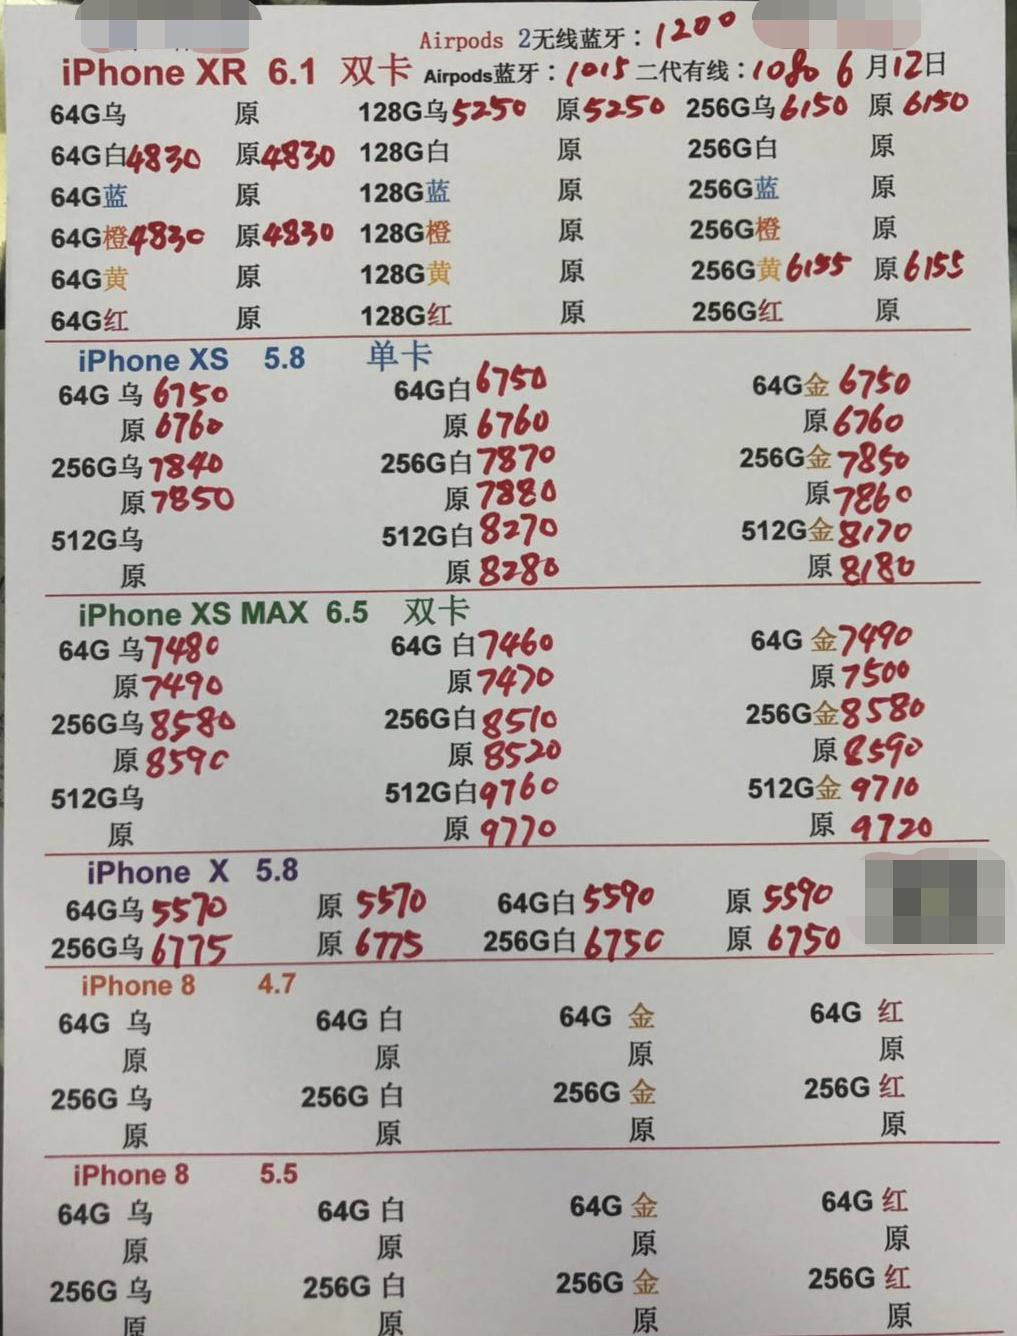 Airpods 2无线蓝牙：1200
iPhone XR 6.1 双卡 Airpods蓝牙：1015 二代有线：1080 6月12日
64G乌 原 128G乌5250 原5250 256G乌6150 原6150
64G白4830 原4830 128G白 原 256G白 原
64G蓝 原 128G蓝 原 256G蓝 原
64G橙4830 原4830 128G橙 原 256G橙 原
64G黄 原 128G黄 原 256G黄6155 原6155
64G红 原 128G红 原 256G红 原
iPhone XS 5.8 单卡
64G 乌6750 64G白6750 64G金6750
原6760 原6760 原6760
256G乌7840 256G白7870 256G金7850
原7850 原7880 原7860
512G乌 512G白8270 512G金8170
原 原8280 原8180
iPhone XS MAX 6.5 双卡
64G 乌7480 64G 白7460 64G 金7490
原7490 原7470 原7500
256G乌8580 256G白8510 256G金8580
原8590 原8520 原8590
512G乌 512G白9760 512G金9710
原 原9770 原9720
iPhone X 5.8
64G乌5570 原5570 64G白5590 原5590
256G乌6775 原6775 256G白6750 原6750
iPhone 8 4.7
64G 乌 64G 白 64G 金 64G 红
原 原 原 原
256G 乌 256G 白 256G 金 256G 红
原 原 原 原
iPhone 8 5.5
64G 乌 64G 白 64G 金 64G 红
原 原 原 原
256G 乌 256G 白 256G 金 256G 红
原 原 原 原